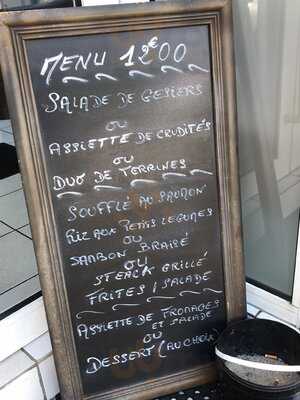 MENU 12€00
SALADE DE GESIERS
OU
ASSIETTE DE CRUDITÉS
OU
DUO DE TERRINES
SOUFFLÉ AU SAUMON
RIZ AUX PETITS LEGUMES
OU
JAMBON BRAISÉ
OU
STEACK GRILLÉ
FRITES / SALADE
ASSIETTE DE FROMAGES
ET SALADE
OU
DESSERT (AU CHOIX)